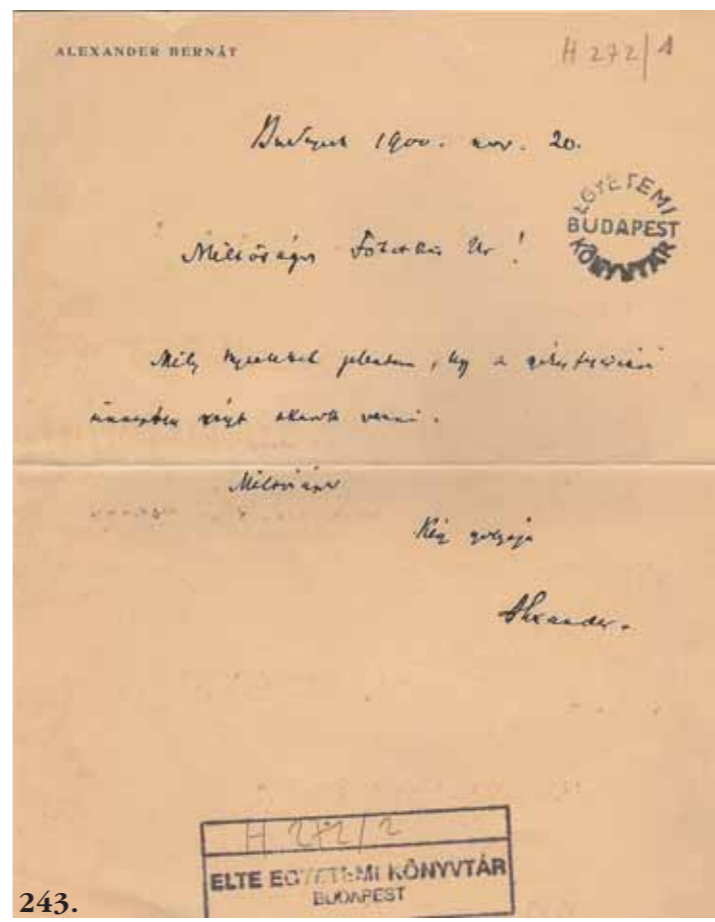 ALEXANDER BERNÁT
H 272/1
Budapest 1900. nov. 20.
EGYETEMI
BUDAPEST
KÖNYVTÁR
Méltóságos Főtitkár Úr!
Mély tisztelettel jelentem, hogy a
részt akarok venni.
Méltóságos
kész szolgája
Alexander.
H 272/2
ELTE EGYETEMI KÖNYVTÁR
BUDAPEST
243.